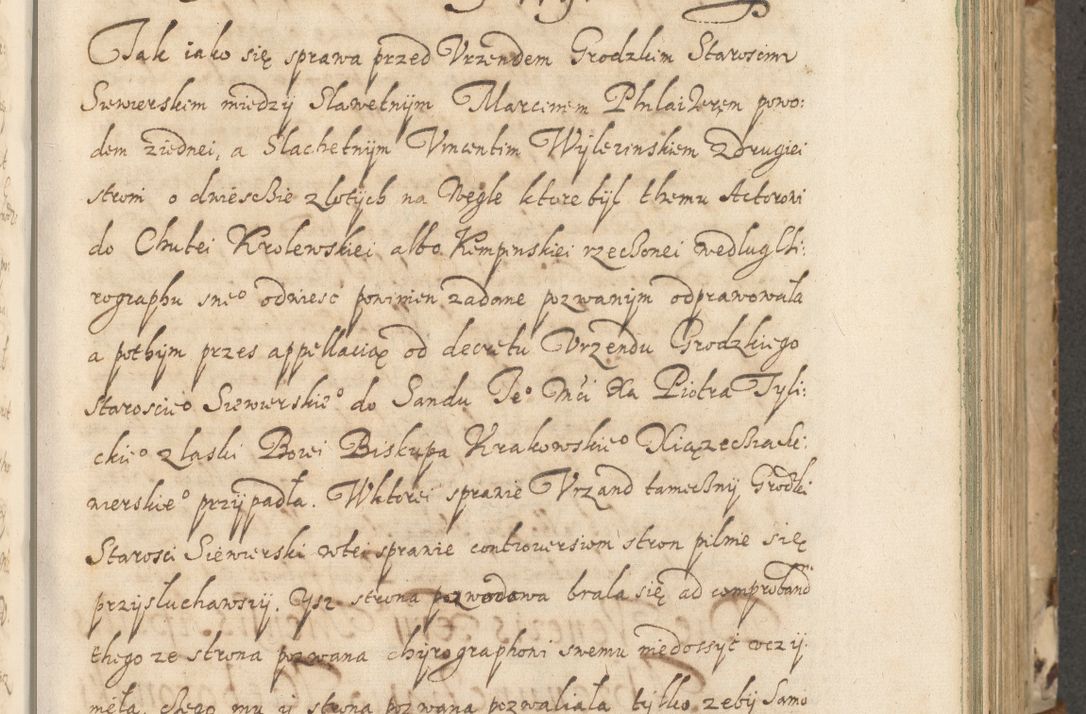 Tak iako się sprawa przed Vrzendem Grodzkim Starosimi
Siewierskim miedzy Slawetnÿm Marcinem Philaiderem powo:
dem ziednei, a Slachetnÿm Vincentim Wÿlezinskiem Zdrugiei
stroni o dwiescbie zlotÿch na Węgle ktore bÿl themu Actorowi
do Chutei Krolewskiei albo Kempinskiei rzechonei wedlug Chi:
rographu sweº odwiesc powinien zadane pozwanÿm odprawowała
a pothÿm przes appellacią od decretu Vrzendu Grodzkiego
Staroscieº Siewierskieº do Sandu Jeº Mći Xa Piotra Tyli:
ckieº z laski Bozei Biskupa Krakowskieº Xiązęchia Sie:
wierskieº przÿpadła. Wktorei sprawie Vrzand tamechnÿ Grodzki
Starosci Siewierski wtei sprawie controversiom stron pilnie się
przÿsłuchawszÿ. Ysz strona powodowa brala się ad comproband
thego ze strona pozwana chÿrographowi swemu niedossÿc vczÿ:
niela, Czego mu ÿ strona pozwana pozwaliala tÿlko zebÿ samo